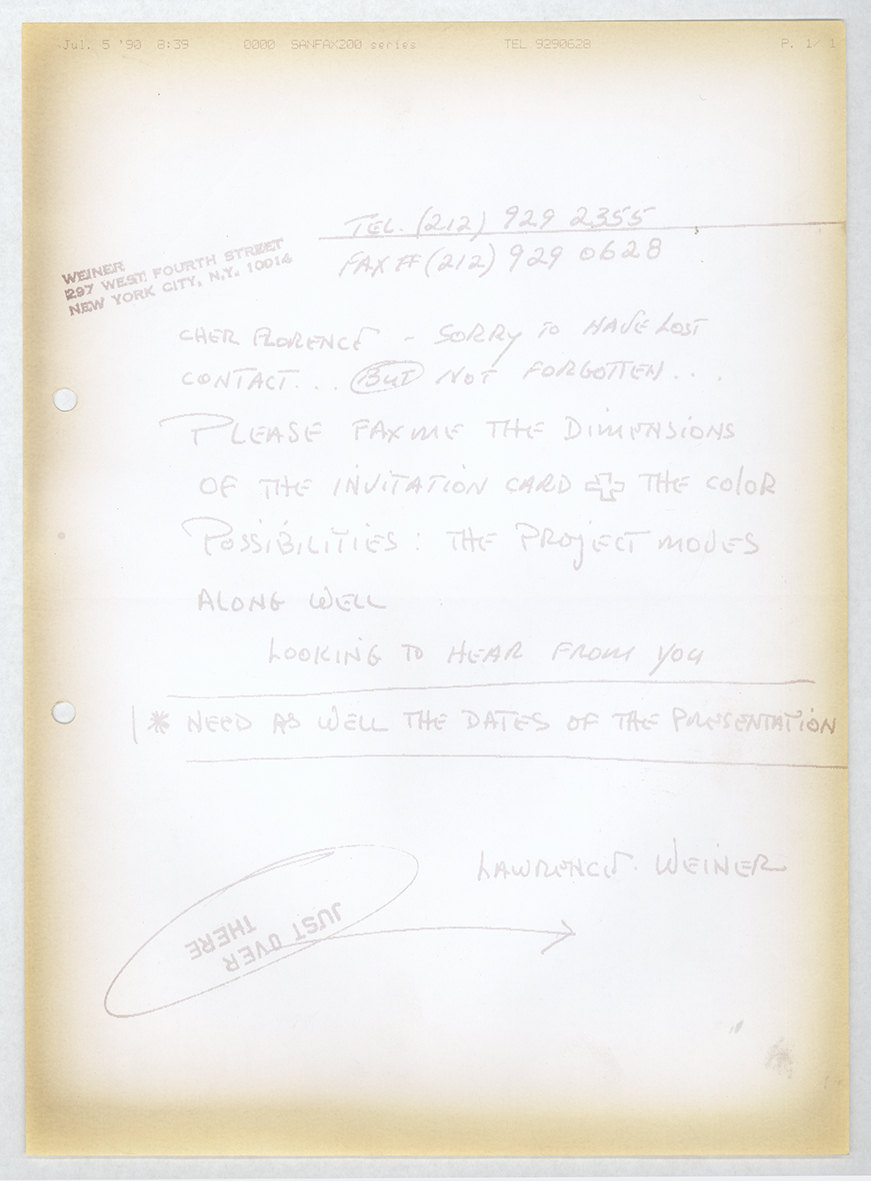 Jul. 5 '90 8:39 0000 SANFAX200 series TEL 9290628 P. 1/ 1
TEL. (212) 929 2355
FAX # (212) 929 0628
WEINER
297 WEST FOURTH STREET
NEW YORK CITY, N.Y. 10014
CHER FLORENCE - SORRY TO HAVE LOST
CONTACT... BUT NOT FORGOTTEN....
PLEASE FAX ME THE DIMENSIONS
OF THE INVITATION CARD + THE COLOR
POSSIBILITIES: THE PROJECT MOVES
ALONG WELL
LOOKING TO HEAR FROM YOU
* NEED AS WELL THE DATES OF THE PRESENTATION
LAWRENCE WEINER
JUST OVER
THERE